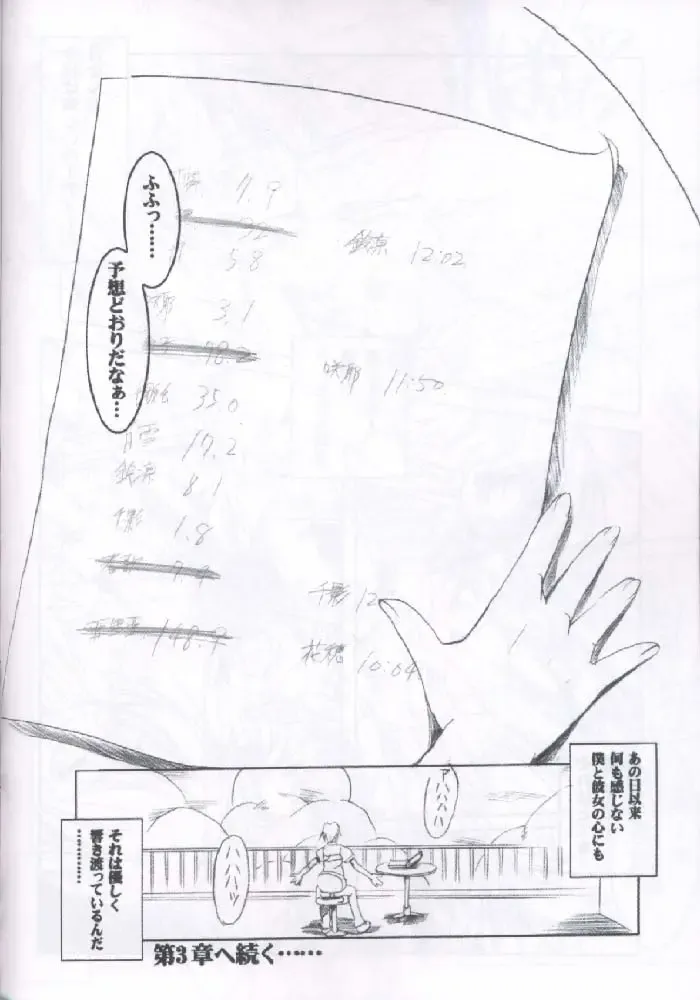 ふふっ……
予想どおりだなぁ…
7.9
92
5.8
鈴凛 12:02
3.1
78.2
咲耶 11:50
35.0
17.2
鈴凛 8.1
千影 1.8
7.9
148.9
千影 12
花穂 10:04
あの日以来
何も感じない
僕と彼女の心にも
アハハハハ
ハハハハッ
それは優しく
響き渡っているんだ
…………
第3章へ続く……